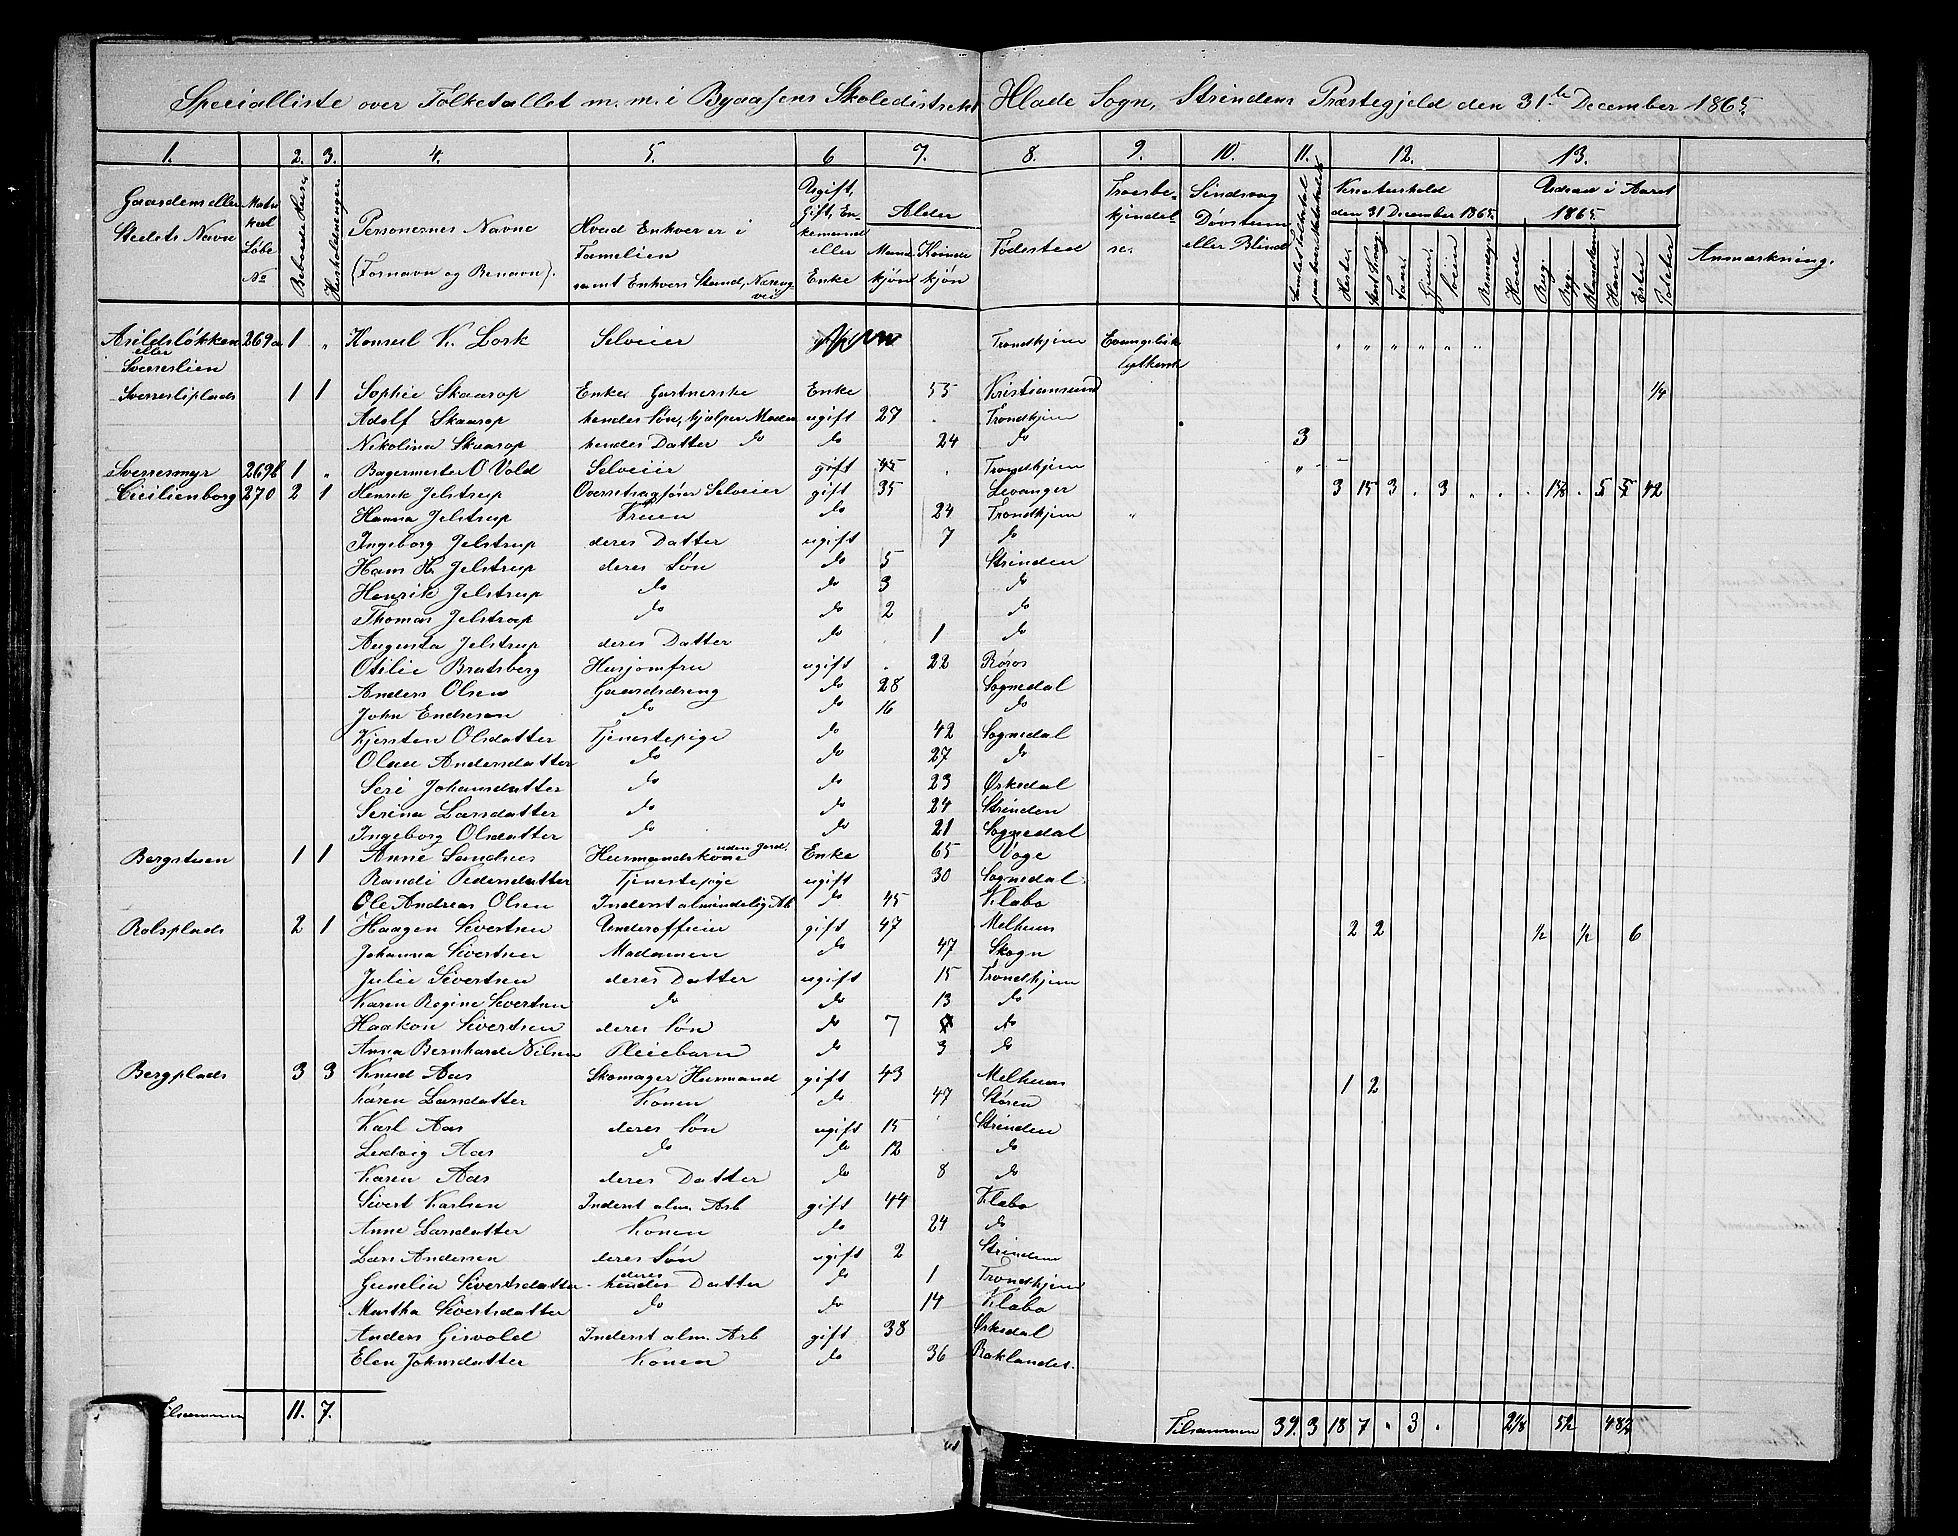 Specialliste over Folketallet m. m. i Byaasens Skoledistrekt Hlade Sogn, Strindens Præstegjeld den 31te December 1865.
1. 2. 3. 4. 5. 6 7. 8. 9. 10. 11. 12. 13.
Gaardens eller Stedets Navn
Matrikul Løbe No
Beboede Huse
Husholdninger
Personernes Navne (Fornavn og Benavn).
Hvad Enhver er i Familien samt Enhvers Stand, Næringsvei
Ugift, Gift, Enkemand eller Enke
Alder Mandkjøn Kvindekjøn
Fødested
Troesbekjendelse.
Sindsvag Døvstum eller Blind
Kreaturhold den 31 December 1865.
Heste Faar Gjeder Sviin Rensdyr
Udsæd i Aaret 1865
Hvede Rug Byg Blandkorn Havre Erter Poteter
Anmærkning.
Arildsløkken eller Sverreslien 269a 1 " Konsul K. Lork Selveier Trondhjem Evangelisk lythersk " " " " " "
Sverresliplads 1 1 Sophie Skaarop Enke Gartnerske Enke 55 Kristiansund 1/4
Adolf Skaarop hendes Søn, hjælper Moder ugift 27 Trondhjem
Nikolina Skaarop hendes Datter do do 24 do 3
Sverresmyr 269b 1 " Bagermester O Vold Selveier gift 45 Trondhjem "
Cicilienborg 270 2 1 Henrik Jelstrup Overretsagfører Selveier gift 35 Levanger 3 15 3 . 3 " . . 1 1/8 . 5 5 42
Hanna Jelstrup Fruen do 24 Trondhjem "
Ingeborg Jelstrup deres Datter ugift 7 do
Hans H. Jelstrup deres Søn do 5 Strinden
Henrik Jelstrup do do 3 do
Thomas Jelstrup do do 2 do
Augusta Jelstrup deres Datter do 1 do
Otilie Bratsberg Husjomfru ugift 22 Røros
Anders Olsen Gaardsdreng do 28 Sognedal
John Endresen do do 16 do
Kjersten Olsdatter Tjenestepige do 42 Sognedal
Olava Andersdatter do do 27 do
Seri Johansdatter do do 23 Ørkedal
Serina Larsdatter do do 24 Strinden
Ingeborg Olsdatter do do 21 Sognedal
Bergstuen 1 1 Anne Sandnes Husmandskone uden Jord. Enke 65 Vage
Randi Pedersdatter Tjenestepige ugift 30 Sognedal
Ole Andreas Olsen Inderst almindelig Arb do 45 Klæbo
Rolsplads 2 1 Haagen Sivertsen Underofficer gift 47 Melhuus 2 2 1/2 1/2 6
Johanna Sivertsen Madamen do 47 Skogn
Julie Sivertsen deres Datter ugift 15 Trondhjem
Karen Regine Sivertsen do do 13 do
Haakon Sivertsen deres Søn do 7 do
Anna Bernhard Nilsen Pleiebarn do 3 do
Bergplads 3 3 Knud Aas Skomager Husmand gift 43 Melhuus 1 2
Karen Larsdatter Konen do 47 Støren
Karl Aas deres Søn ugift 15 Strinden
Ludvig Aas do do 12 do
Karen Aas deres Datter do 8 do
Sivert Karlsen Inderst alm. Arb gift 44 Klæbo
Anne Larsdatter Konen do 24 do
Lars Andersen deres Søn ugift 2 Strinden
Gunelia Sivertsdatter deres hendes Datter do 1 Trondhjem
Martha Sivertsdatter do do 14 Klæbo
Anders Gisvold Inderst alm. Arb gift 38 Ørkedal
Elen Johnsdatter Konen do 36 Baklandet.
Tilsammen 11. 7. Tilsammen 39. 3 18 7 " 3 . 2 1/8 5 1/2 48 1/4